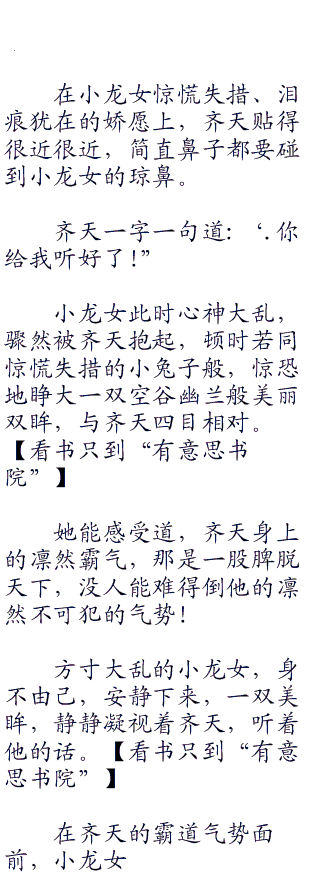 在小龙女惊慌失措、泪
痕犹在的娇愿上，齐天贴得
很近很近，简直鼻子都要碰
到小龙女的琼鼻。
齐天一字一句道：‘.你
给我听好了!”
小龙女此时心神大乱，
骤然被齐天抱起，顿时若同
惊慌失措的小兔子般，惊恐
地睁大一双空谷幽兰般美丽
双眸，与齐天四目相对。
【看书只到“有意思书
院”】
她能感受道，齐天身上
的凛然霸气，那是一股脾脱
天下，没人能难得倒他的凛
然不可犯的气势!
方寸大乱的小龙女，身
不由己，安静下来，一双美
眸，静静凝视着齐天，听着
他的话。【看书只到“有意
思书院”】
在齐天的霸道气势面
前，小龙女